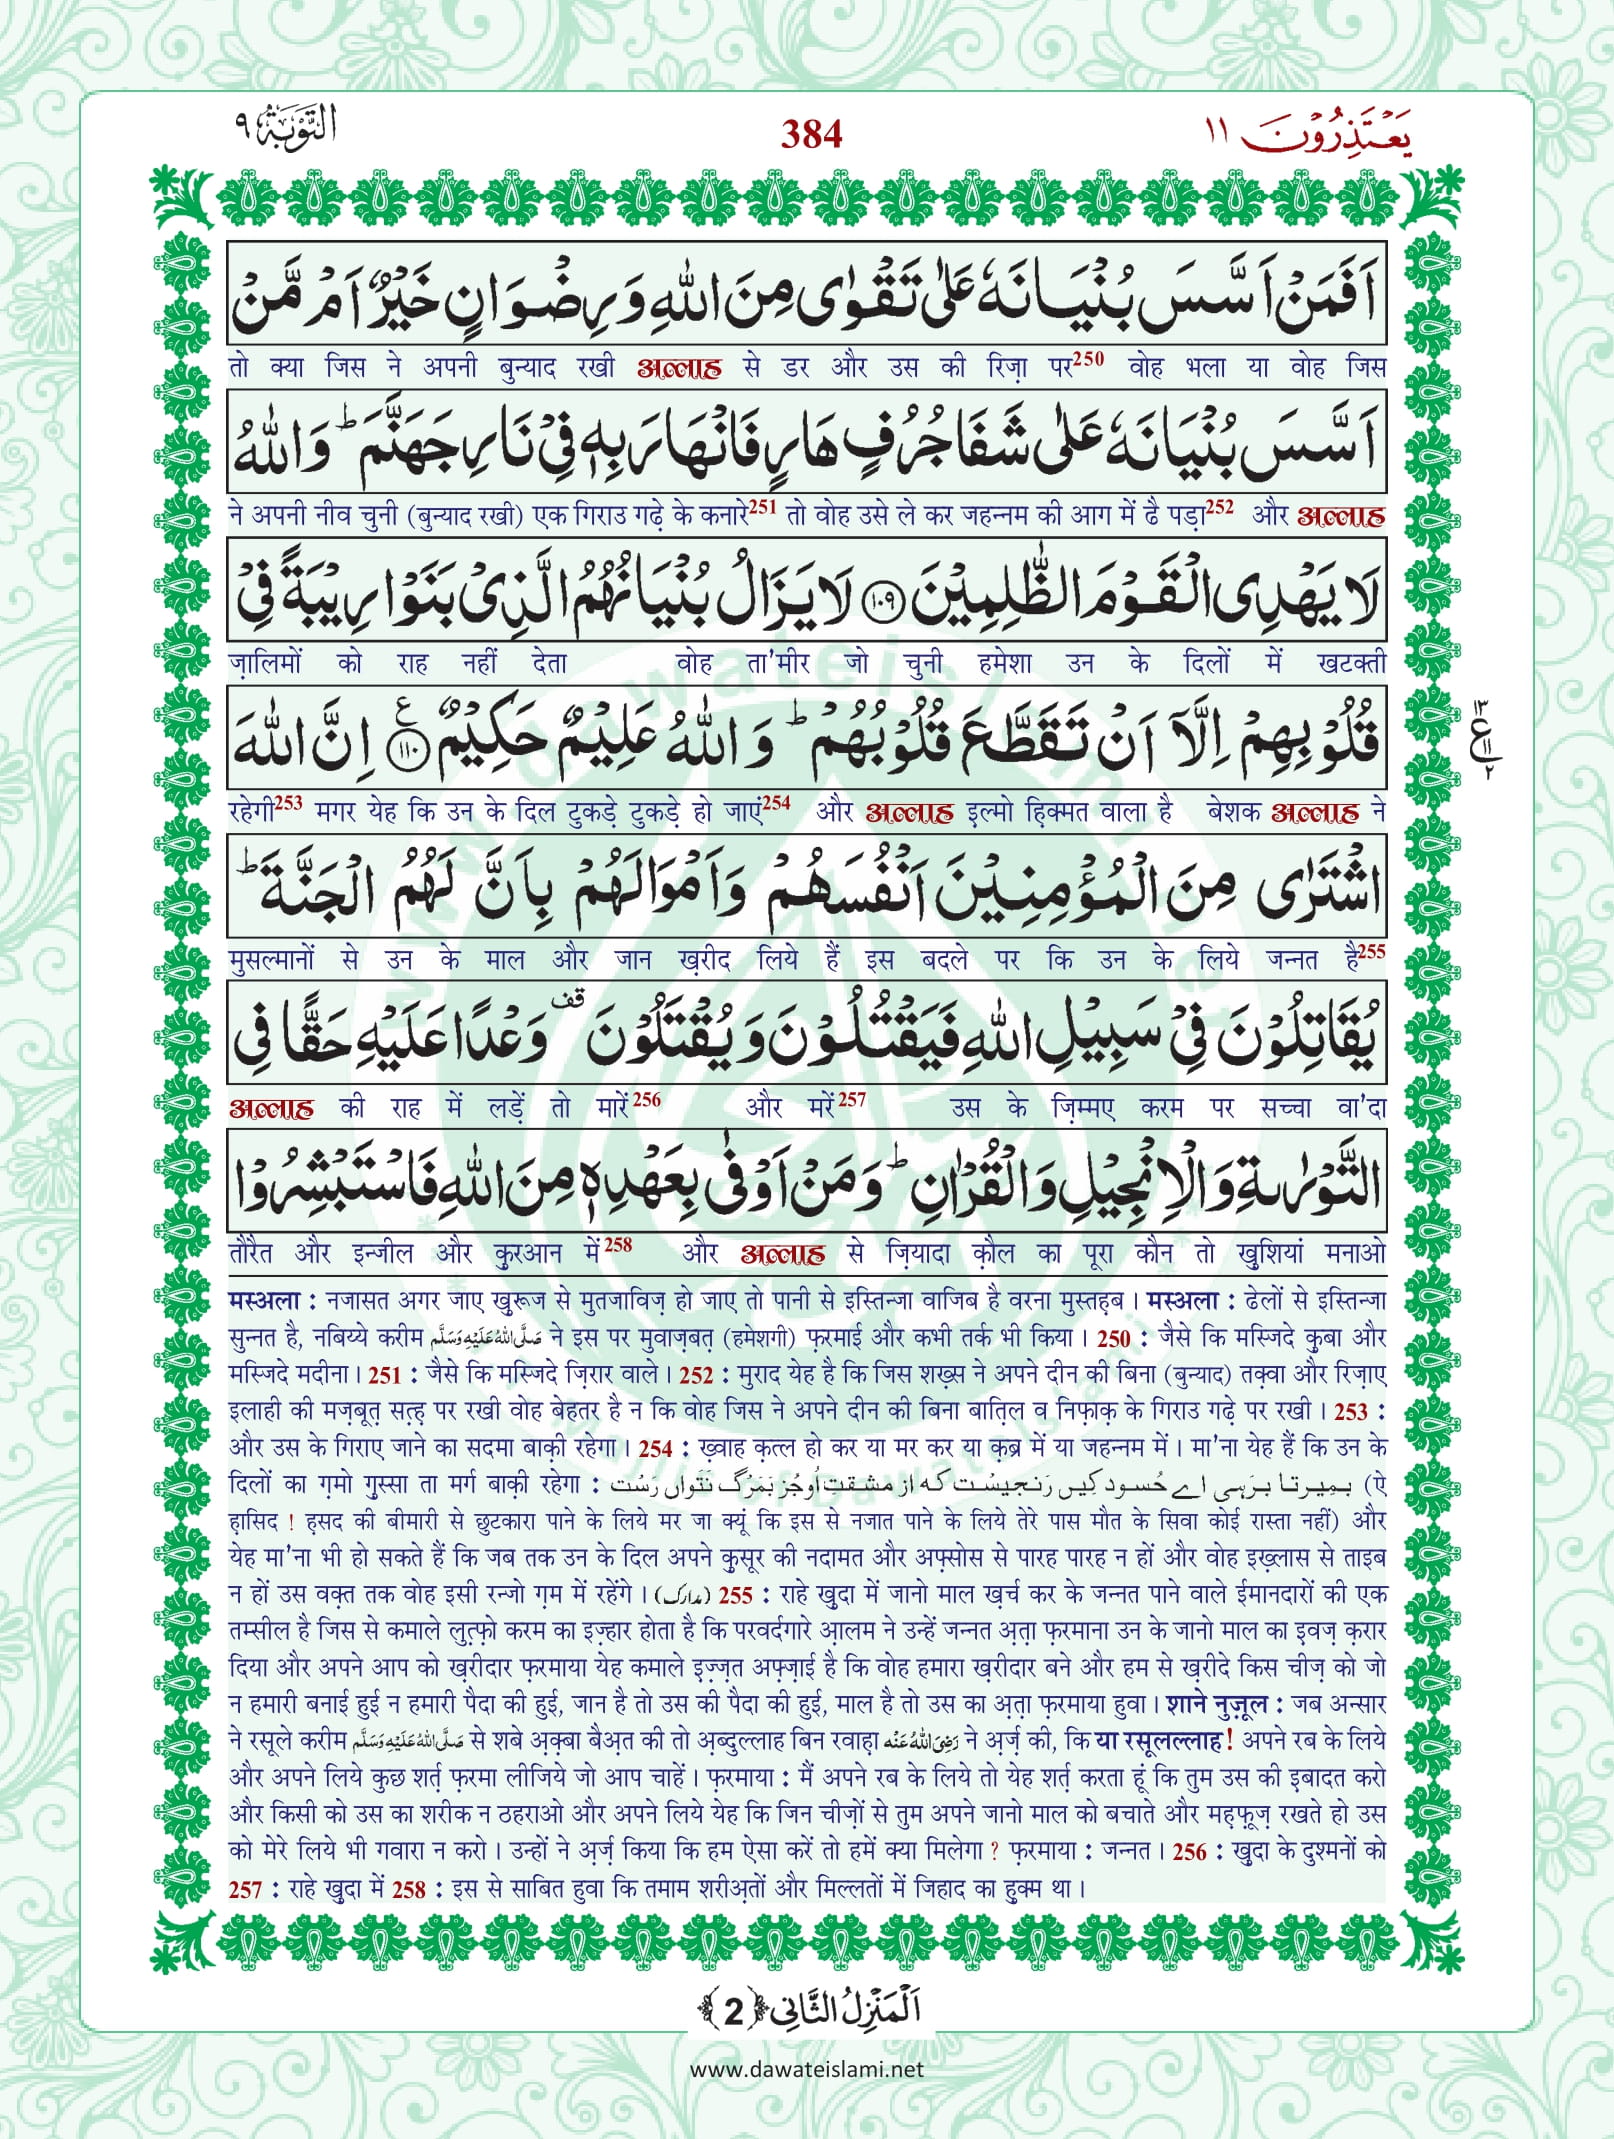 يَعْتَذِرُوْنَ ١١ 384 التَّوْبَة ٩
اَفَمَنْ اَسَّسَ بُنْيَانَهٗ عَلٰى تَقْوٰى مِنَ اللّٰهِ وَ رِضْوَانٍ خَيْرٌ اَمْ مَّنْ
तो क्या जिस ने अपनी बुन्याद रखी अल्लाह से डर और उस की रिज़ा पर250 वोह भला या वोह जिस
اَسَّسَ بُنْيَانَهٗ عَلٰى شَفَا جُرُفٍ هَارٍ فَانْهَارَ بِهٖ فِيْ نَارِ جَهَنَّمَ ؕ وَ اللّٰهُ
ने अपनी नीव चुनी (बुन्याद रखी) एक गिराउ गढ़े के कनारे251 तो वोह उसे ले कर जहन्नम की आग में ढै पड़ा252 और अल्लाह
لَا يَهْدِي الْقَوْمَ الظّٰلِمِيْنَ ۝١٠٩ لَا يَزَالُ بُنْيَانُهُمُ الَّذِيْ بَنَوْا رِيْبَةً فِيْ
ज़ालिमों को राह नहीं देता वोह ता'मीर जो चुनी हमेशा उन के दिलों में खटकती
قُلُوْبِهِمْ اِلَّاۤ اَنْ تَقَطَّعَ قُلُوْبُهُمْ ؕ وَ اللّٰهُ عَلِيْمٌ حَكِيْمٌ ۝١١٠ ع اِنَّ اللّٰهَ
١٣ ع ١١ ٢
रहेगी253 मगर येह कि उन के दिल टुकड़े टुकड़े हो जाएं254 और अल्लाह इल्मो हिक्मत वाला है बेशक अल्लाह ने
اشْتَرٰى مِنَ الْمُؤْمِنِيْنَ اَنْفُسَهُمْ وَ اَمْوَالَهُمْ بِاَنَّ لَهُمُ الْجَنَّةَ ؕ
मुसल्मानों से उन के माल और जान ख़रीद लिये हैं इस बदले पर कि उन के लिये जन्नत है255
يُقَاتِلُوْنَ فِيْ سَبِيْلِ اللّٰهِ فَيَقْتُلُوْنَ وَ يُقْتَلُوْنَ قف وَعْدًا عَلَيْهِ حَقًّا فِي
अल्लाह की राह में लड़ें तो मारें256 और मरें257 उस के ज़िम्मए करम पर सच्चा वा'दा
التَّوْرٰىةِ وَ الْاِنْجِيْلِ وَ الْقُرْاٰنِ ؕ وَ مَنْ اَوْفٰى بِعَهْدِهٖ مِنَ اللّٰهِ فَاسْتَبْشِرُوْا
तौरैत और इन्जील और क़ुरआन में258 और अल्लाह से ज़ियादा क़ौल का पूरा कौन तो ख़ुशियां मनाओ
मस्अला : नजासत अगर जाए ख़ुरूज से मुतजाविज़ हो जाए तो पानी से इस्तिन्जा वाजिब है वरना मुस्तह़ब । मस्अला : ढेलों से इस्तिन्जा
सुन्नत है, नबिय्ये करीम صَلَّى اللّٰهُ عَلَيْهِ وَسَلَّم ने इस पर मुवाज़बत़ (हमेशगी) फ़रमाई और कभी तर्क भी किया । 250 : जैसे कि मस्जिदे क़ुबा और
मस्जिदे मदीना । 251 : जैसे कि मस्जिदे ज़िरार वाले । 252 : मुराद येह है कि जिस शख़्स ने अपने दीन की बिना (बुन्याद) तक़्वा और रिज़ाए
इलाही की मज़बूत़ सत़्ह़ पर रखी वोह बेहतर है न कि वोह जिस ने अपने दीन की बिना बात़िल व निफ़ाक़ के गिराउ गढ़े पर रखी । 253 :
और उस के गिराए जाने का सदमा बाक़ी रहेगा । 254 : ख़्वाह क़त्ल हो कर या मर कर या क़ब्र में या जहन्नम में । मा'ना येह हैं कि उन के
दिलों का ग़मो ग़ुस्सा ता मर्ग बाक़ी रहेगा : بمیرتا برہی اے حسود کیں رنجیست کہ از مشقت اوجز بمرگ نتواں رست (ऐ
ह़ासिद ! ह़सद की बीमारी से छुटकारा पाने के लिये मर जा क्यूं कि इस से नजात पाने के लिये तेरे पास मौत के सिवा कोई रास्ता नहीं) और
येह मा'ना भी हो सकते हैं कि जब तक उन के दिल अपने क़ुसूर की नदामत और अफ़्सोस से पारह पारह न हों और वोह इख़्लास से ताइब
न हों उस वक़्त तक वोह इसी रन्जो ग़म में रहेंगे । (مدارک) 255 : राहे ख़ुदा में जानो माल ख़र्च कर के जन्नत पाने वाले ईमानदारों की एक
तम्सील है जिस से कमाले लुत़्फ़ो करम का इज़्हार होता है कि परवर्दगारे आ़लम ने उन्हें जन्नत अ़त़ा फ़रमाना उन के जानो माल का इवज़ क़रार
दिया और अपने आप को ख़रीदार फ़रमाया येह कमाले इ़ज़्ज़त अफ़्ज़ाई है कि वोह हमारा ख़रीदार बने और हम से ख़रीदे किस चीज़ को जो
न हमारी बनाई हुई न हमारी पैदा की हुई, जान है तो उस की पैदा की हुई, माल है तो उस का अ़त़ा फ़रमाया हुवा । शाने नुज़ूल : जब अन्सार
ने रसूले करीम صَلَّى اللّٰهُ عَلَيْهِ وَسَلَّم से शबे अ़क़्बा बैअ़त की तो अ़ब्दुल्लाह बिन रवाह़ा رَضِيَ اللّٰهُ عَنْه ने अ़र्ज़ की, कि या रसूलल्लाह! अपने रब के लिये
और अपने लिये कुछ शर्त़ फ़रमा लीजिये जो आप चाहें । फ़रमाया : मैं अपने रब के लिये तो येह शर्त़ करता हूं कि तुम उस की इबादत करो
और किसी को उस का शरीक न ठहराओ और अपने लिये येह कि जिन चीज़ों से तुम अपने जानो माल को बचाते और मह़फ़ूज़ रखते हो उस
को मेरे लिये भी गवारा न करो । उन्हों ने अ़र्ज़ किया कि हम ऐसा करें तो हमें क्या मिलेगा ? फ़रमाया : जन्नत । 256 : ख़ुदा के दुश्मनों को
257 : राहे ख़ुदा में 258 : इस से साबित हुवा कि तमाम शरीअ़तों और मिल्लतों में जिहाद का हुक्म था ।
اَلْمَنْزِلُ الثَّانِي ﴿2﴾
www.dawateislami.net